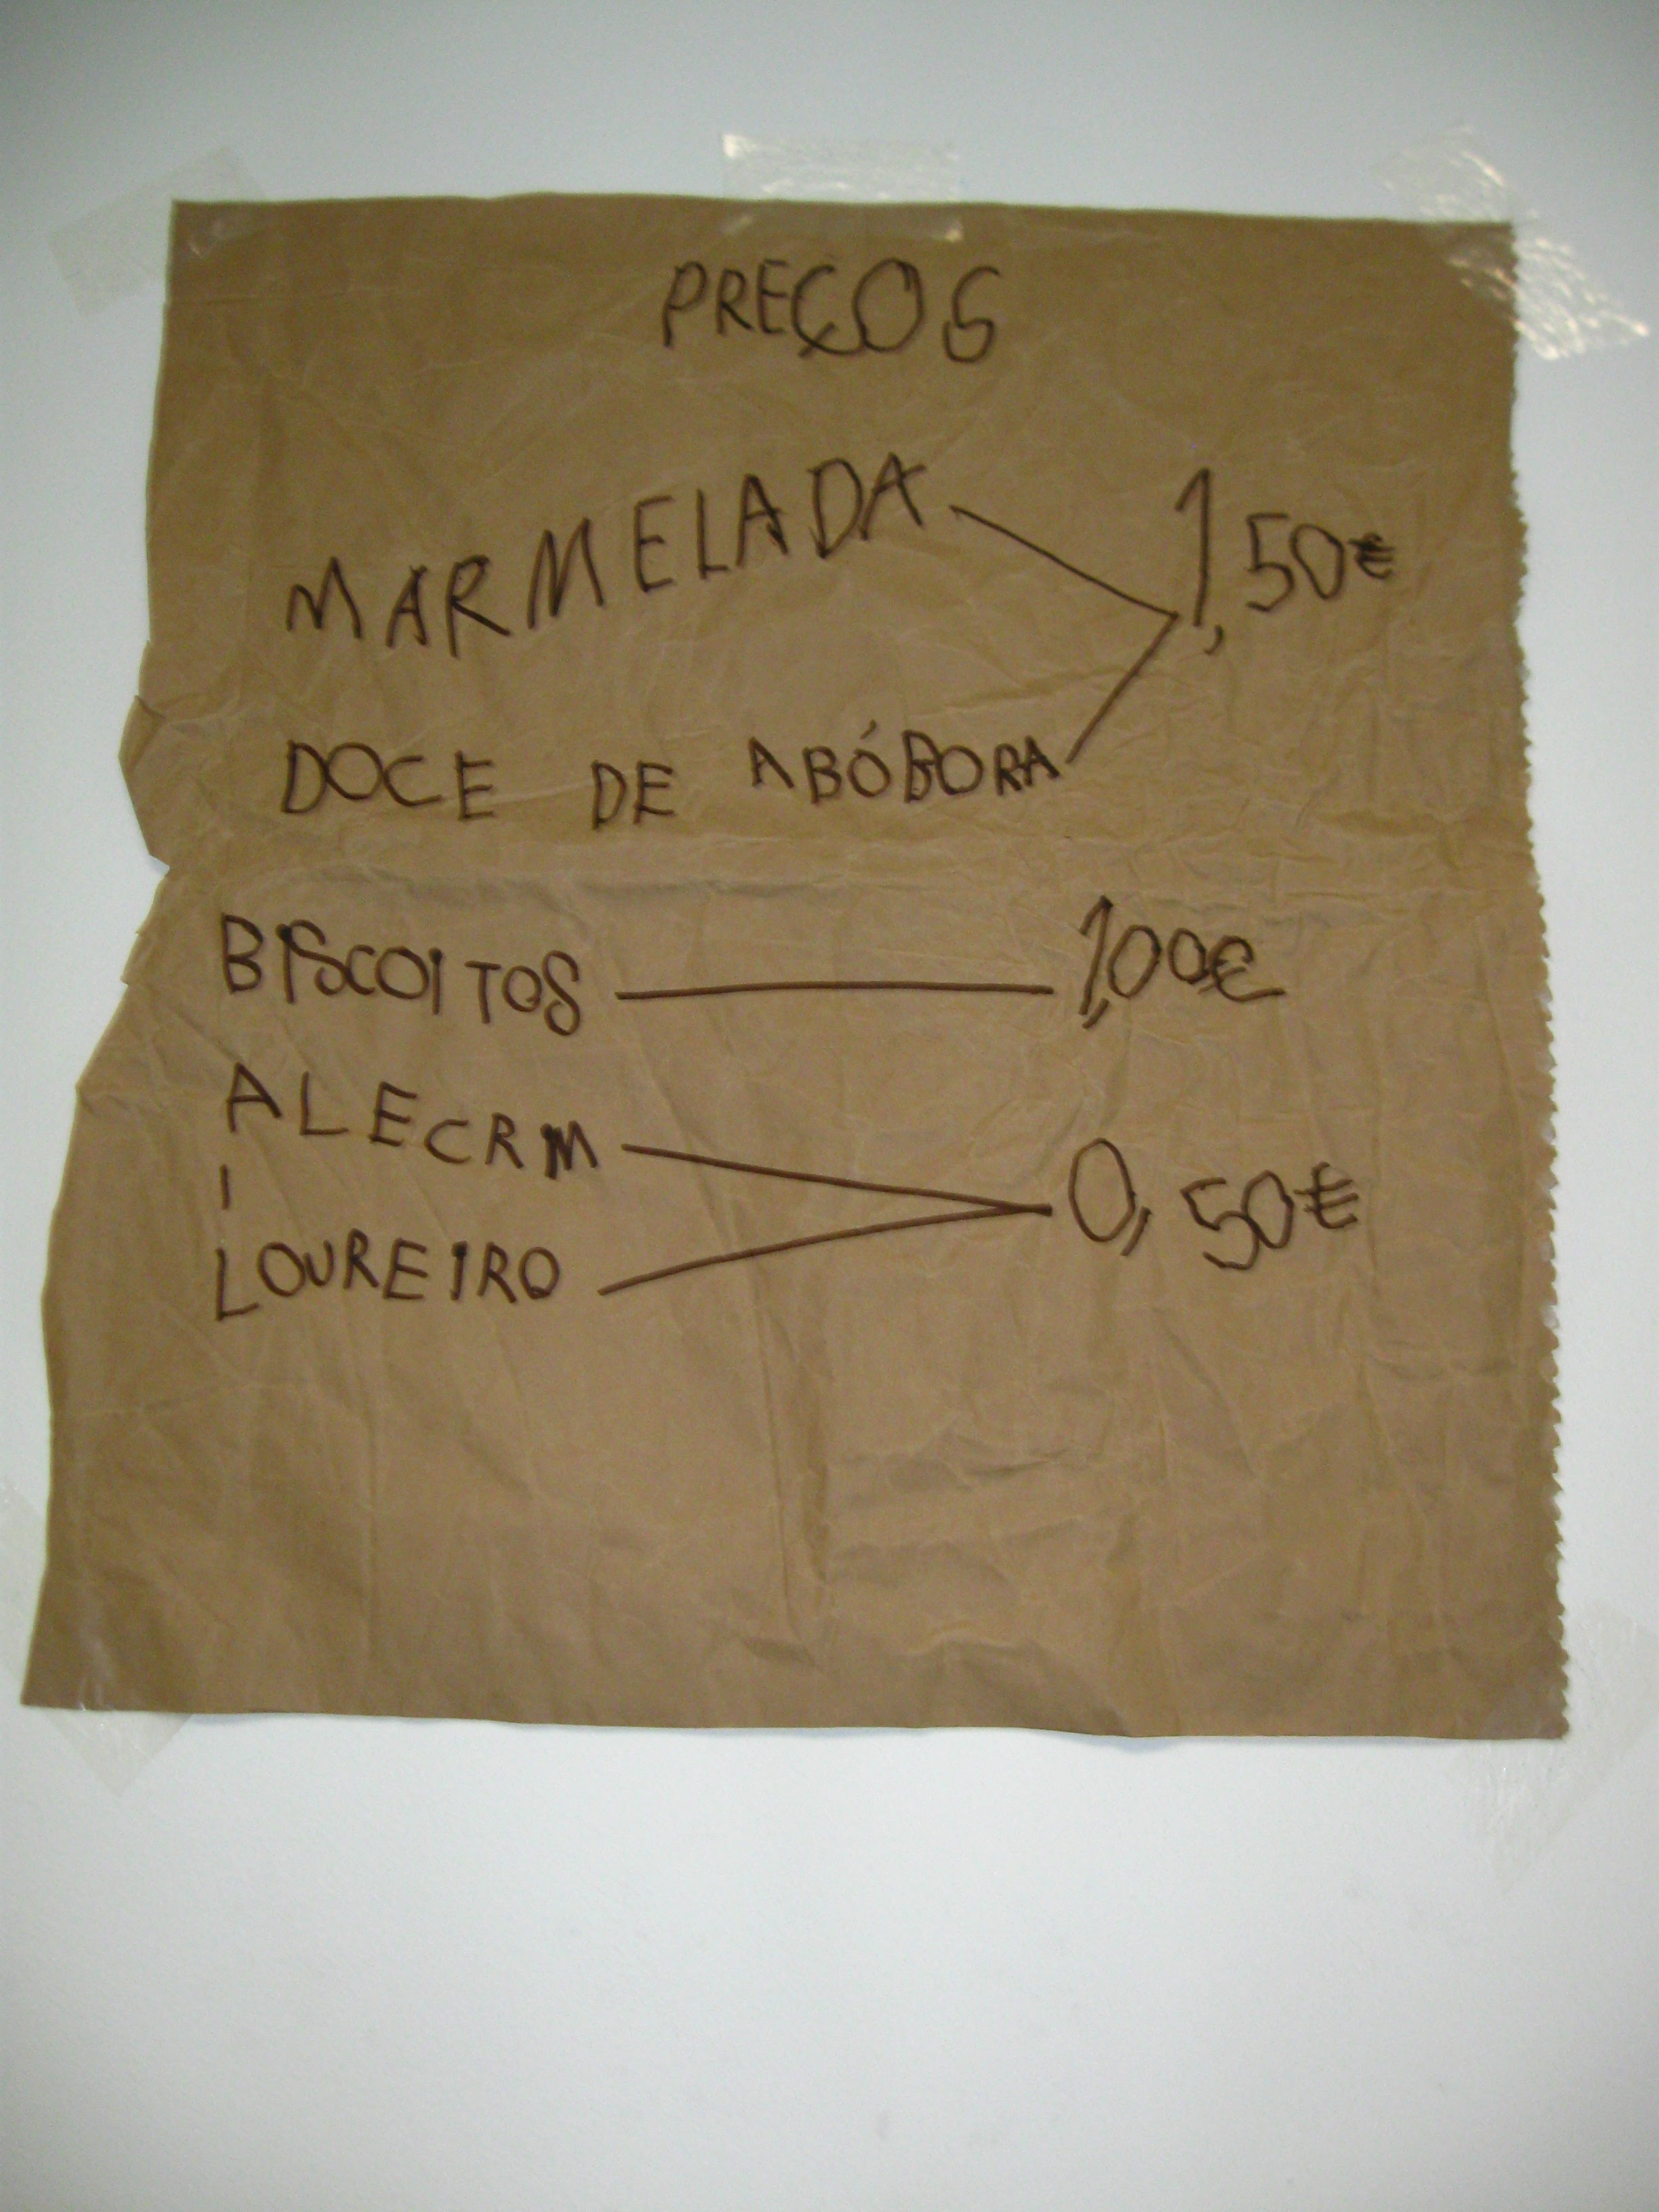 PREÇOS
MARMELADA 1,50€
DOCE DE ABÓBORA
BISCOITOS 1,00€
ALECRM
I
LOUREIRO 0,50€